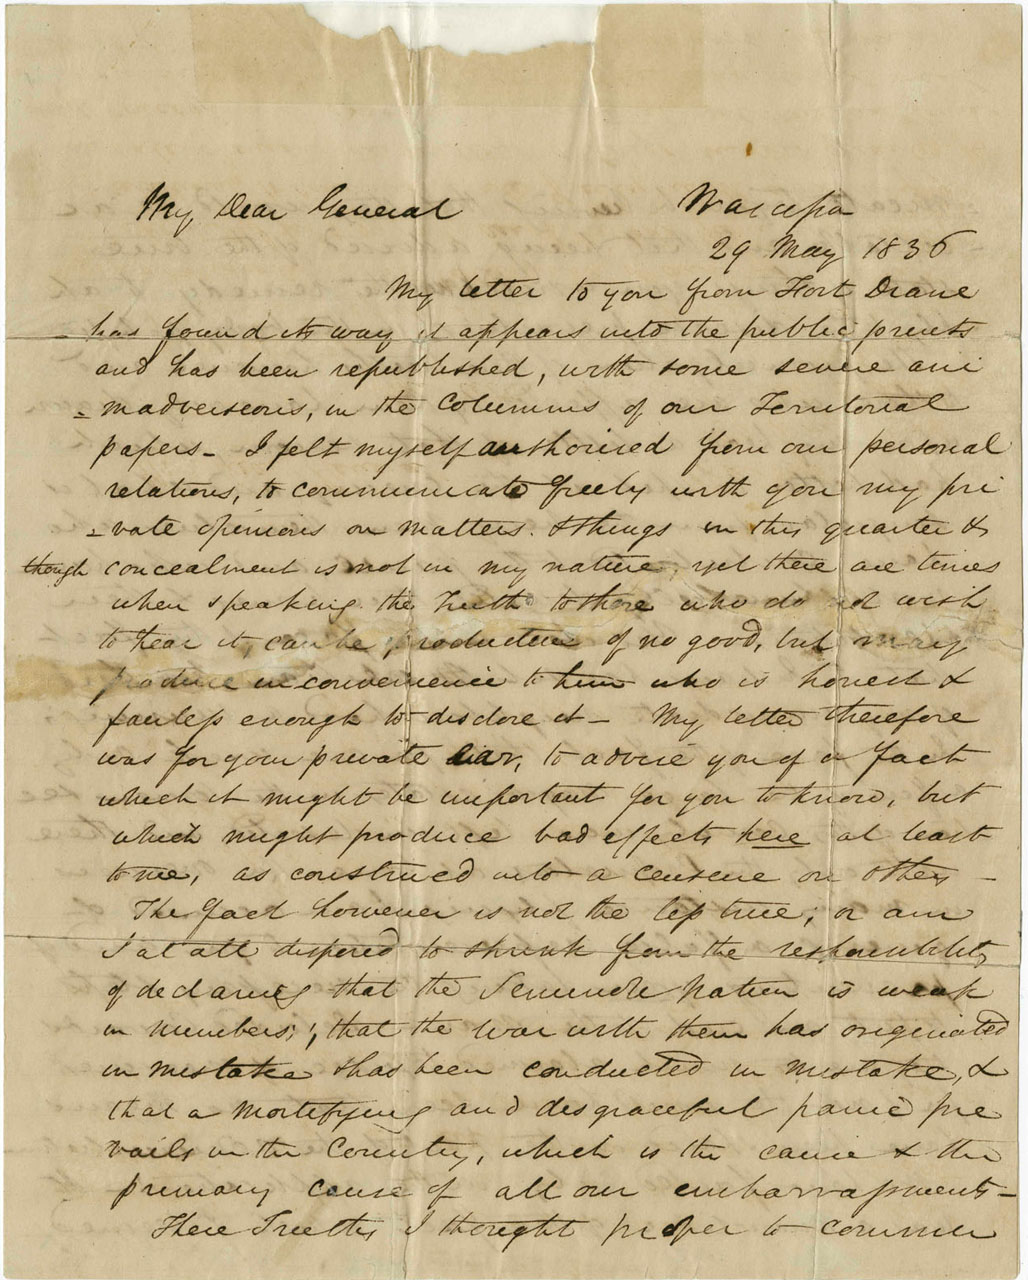 My Dear General
Wacissa
29 May 1836
My letter to you from Fort Drane
has found its way it appears into the public prents
and has been republished, with some severe ani
= madverseons, in the Columns of our Territorial
papers - I felt myself authorised from our personal
relations, to communicate freely with you my pri
= vate opinions on matters & things in this quarter &
though concealment is not in my nature, yet there are times
when speaking the Truth to those who do not wish
to hear it, can be productive of no good, but may
produce inconvenience to him who is honest &
fearless enough to disclose it - My letter therefore
was for your private ear, to advise you of a fact
which it might be important for you to know, but
which might produce bad effects here at least
to me, as construed into a censure on others -
The fact however is not the less true; or am
I at all disposed to shrink from the responsibility
of declaring that the Seminole Nation is weak
in numbers; that the war with them has originated
in mistake & has been conducted in mistake, &
that a mortifying and disgraceful panic pre
vails in the Country, which is the cause & the
primary cause of all our embarrassments -
These Truths I thought proper to commun